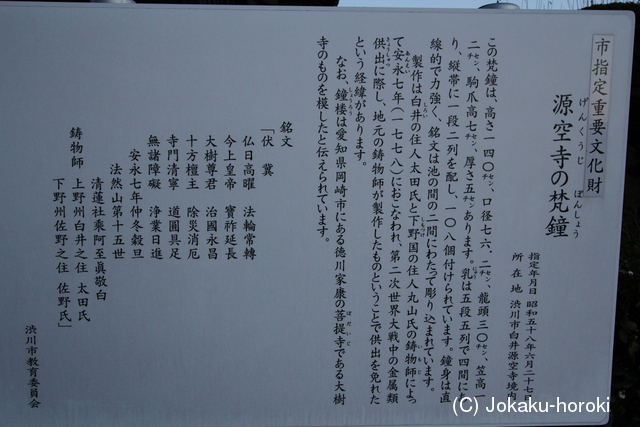 市指定重要文化財
げんくうじ ぼんしょう
源空寺の梵鐘
指定年月日 昭和五十八年六月二十七日
所在地 渋川市白井源空寺境内
この梵鐘は、高さ一四〇㌢、口径七六、二㌢、龍頭三〇㌢、笠高一
二㌢、駒爪高七㌢、厚さ五㌢あります。乳は五段五列で四間にわた
り、縦帯に一段二列を配し、一〇八個付けられています。鐘身は直
線的で力強く、銘文は池の間の二間にわたって彫り込まれています。
製作は白井の住人太田氏と下野国の住人丸山氏の鋳物師によっ
て安永七年(一七七八)におこなわれ、第二次世界大戦中の金属類
供出に際し、地元の鋳物師が製作したものということで供出を免れた
という経緯があります。
なお、鐘楼は愛知県岡崎市にある徳川家康の菩提寺である大樹
寺のものを模したと伝えられています。
銘文
「伏冀
仏日高曜 法輪常轉
今上皇帝 寳祚延長
大樹尊君 治國永昌
十方檀主 除災消厄
寺門清寧 道圓具足
無諸障礙 浄業日進
安永七年仲冬穀旦
法然山第十五世
清蓮社乗阿至眞敬白
鋳物師 上野州白井之住 太田氏
下野州佐野之住 佐野氏」
渋川市教育委員会
(C) Jokaku-horoki